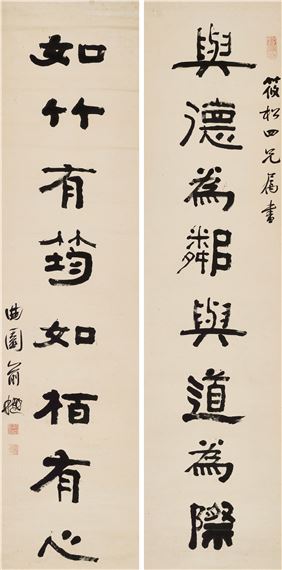 筱松四兄屬書
與德為鄰與道為際
如竹有筠如栢有心
曲園俞樾